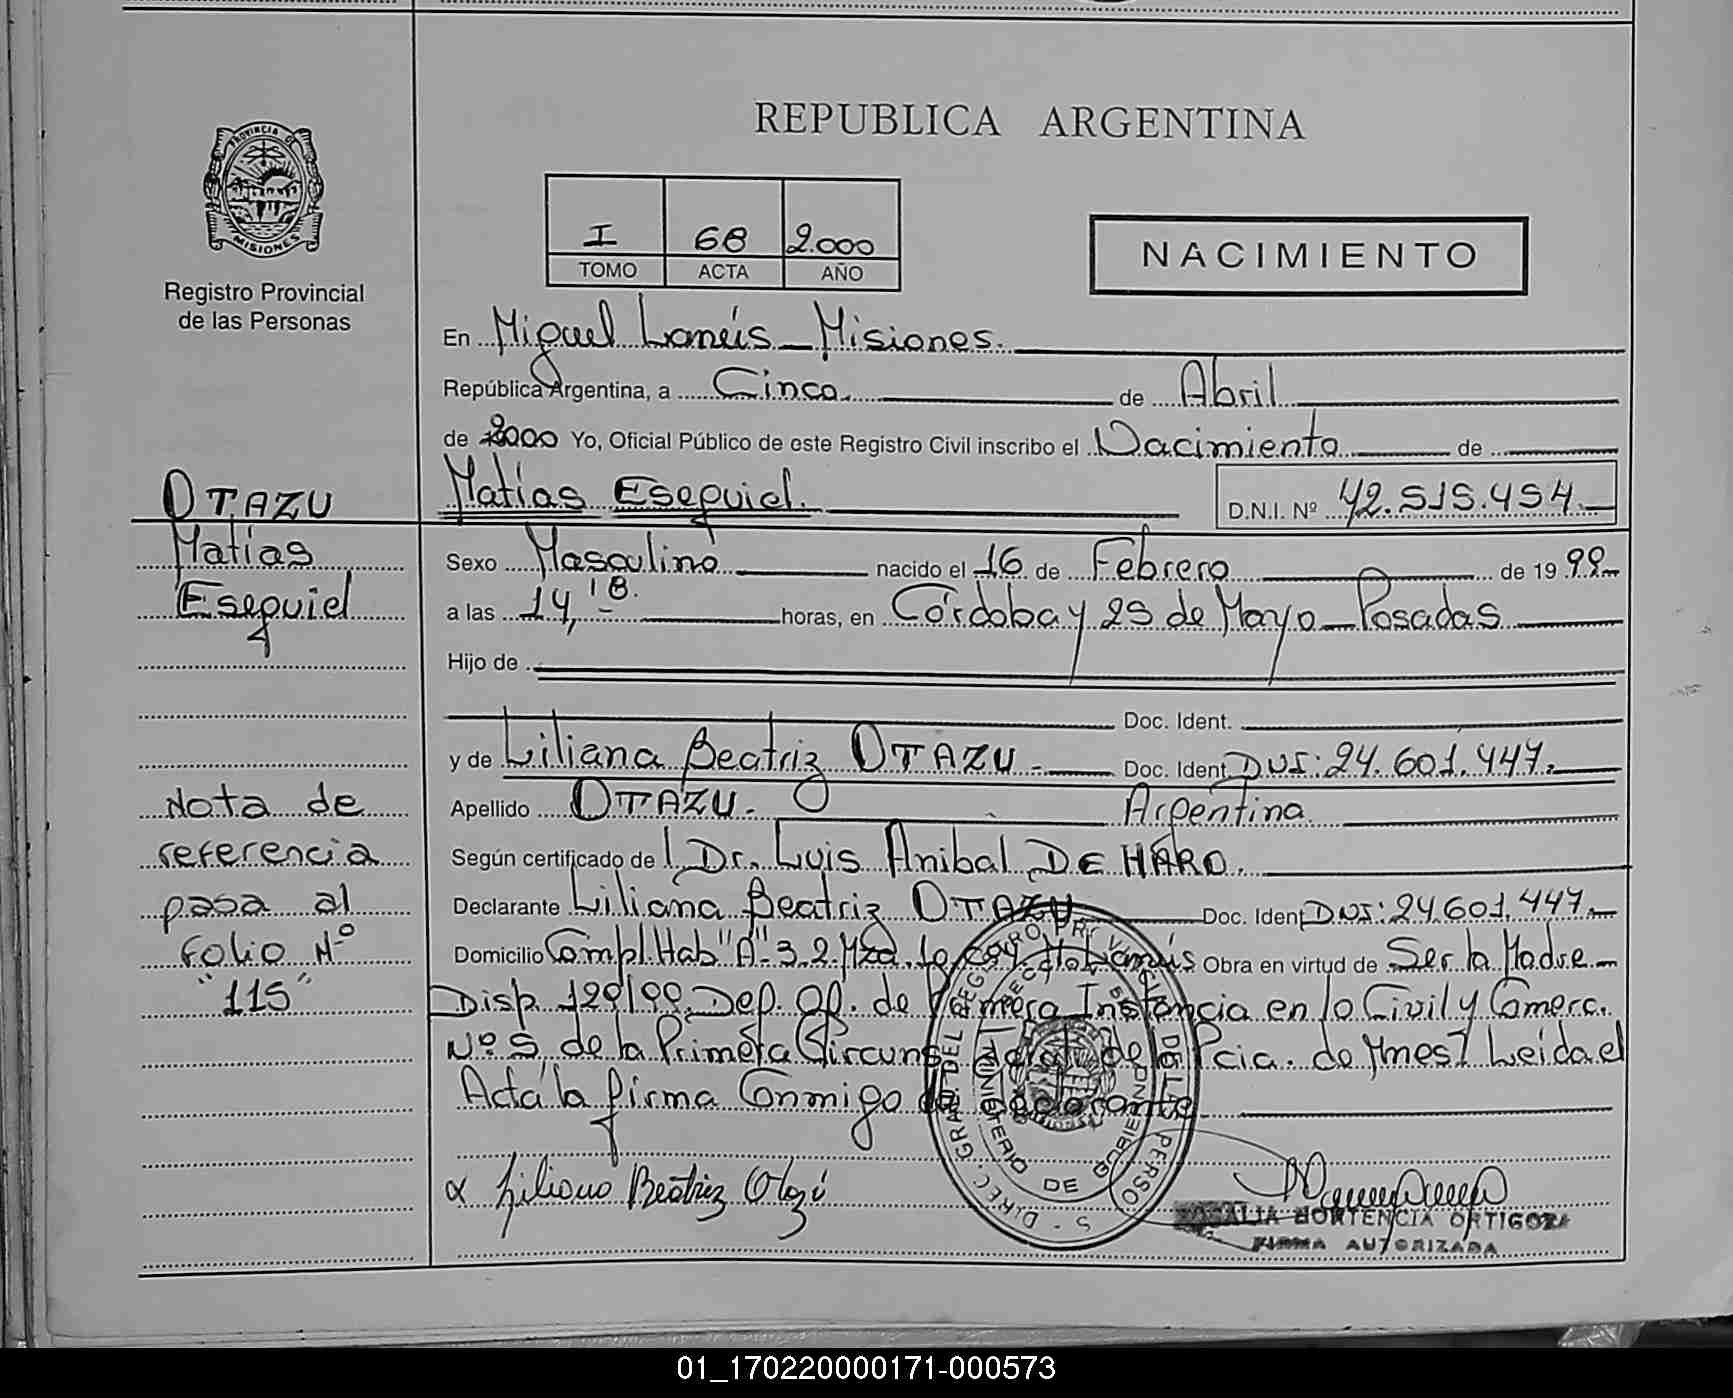 REPUBLICA ARGENTINA
PROVINCIA DE
MISIONES
Registro Provincial
de las Personas
I 68 2.000
TOMO ACTA AÑO
NACIMIENTO
En Miguel Lanús - Misiones.
República Argentina, a Cinco. de Abril
de 2000 Yo, Oficial Público de este Registro Civil inscribo el Nacimiento de
OTAZU
Matías
Esequiel
Matías Esequiel. D.N.I. Nº 42.515.454.-
Sexo Masculino nacido el 16 de Febrero de 19 99-
a las 14,18.- horas, en Córdoba y 25 de Mayo - Posadas
Hijo de
Doc. Ident.
y de Liliana Beatriz OTAZU.- Doc. Ident DNI: 24.601.447.
Apellido OTAZU.- Argentina
Según certificado de Dr. Luis Anibal DE HARO.
Declarante Liliana Beatriz OTAZU Doc. Ident DNI: 24.601.447.-
Domicilio Compl. Hab "A"- 3.2. Mza. Lanús Obra en virtud de Ser la Madre-
Disp. 129/99. Def. Of. de Primera Instancia en lo Civil y Comerc.
Nº 5 de la Primera Circuns de la Pcia. de Mnes. Leida el
Acta la firma Conmigo la declarante
Nota de
referencia
pasa al
Folio Nº
"115"
Liliana Beatriz Otazú
DIREC. GRAL. DEL REGISTRO PROVINCIAL DE LAS PERSONAS
MINISTERIO DE GOBIERNO
ROSALIA HORTENCIA ORTIGOZA
FIRMA AUTORIZADA
01_170220000171-000573